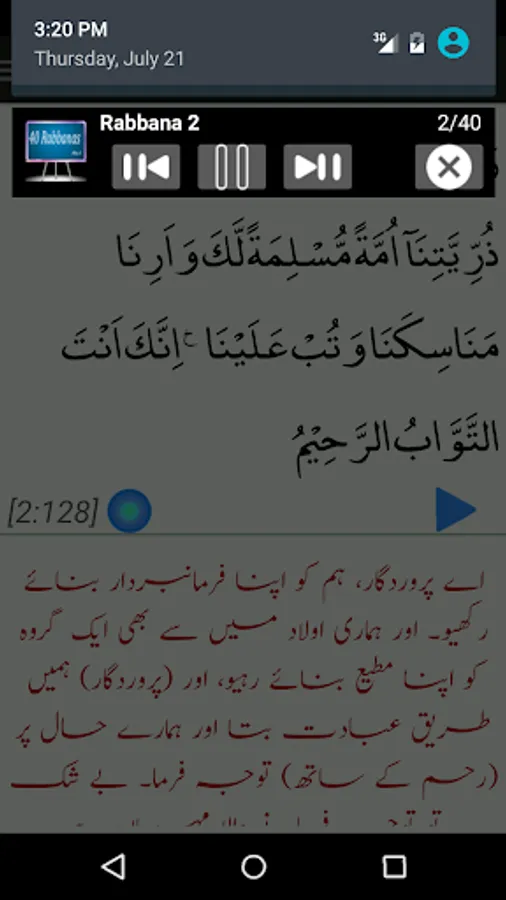 3:20 PM
3G
Thursday, July 21
40 Rabbanas
Rabbana 2
2/40
ذُرِّيَّتِنَآ اُمَّةً مُّسْلِمَةً لَّكَ وَ اَرِنَا
مَنَاسِكَنَا وَ تُبْ عَلَيْنَا ۚ اِنَّكَ اَنْتَ
التَّوَّابُ الرَّحِيْمُ
[2:128]
اے پروردگار، ہم کو اپنا فرمانبردار بنائے
رکھیو۔ اور ہماری اولاد میں سے بھی ایک گروہ
کو اپنا مطیع بنائے رہیو، اور (پروردگار) ہمیں
طریق عبادت بتا اور ہمارے حال پر
(رحم کے ساتھ) توجہ فرما۔ بے شک